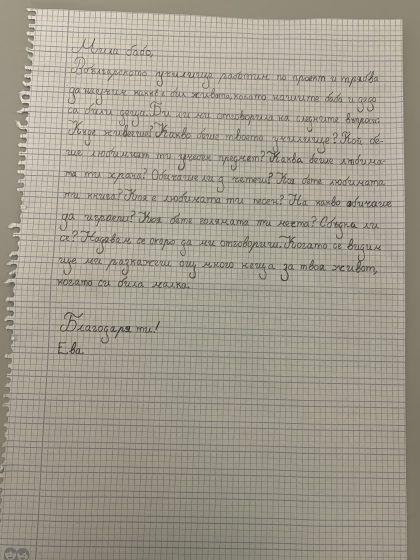 Мила бабо,
В българското училище работим по проект и трябва
да научим какъв е бил живота, когато нашите баба и дядо
са били деца. Би ли ми отговорила на следните въпроси:
Къде живееше? Какво беше твоето училище? Кой бе-
ше любимият ти учебен предмет? Каква беше любима-
та ти храна? Обичаше ли да четеш? Коя бете любимата
ти книга? Коя е любимата ти песен? На какво обичаше
да играеш? Коя бете голямата ти мечта? Сбъдна ли
се? Надявам се скоро да ми отговориш. Когато се видим
ще ми разкажеш още много неща за твоя живот,
когато си била малка.
Благодаря ти!
Ева.